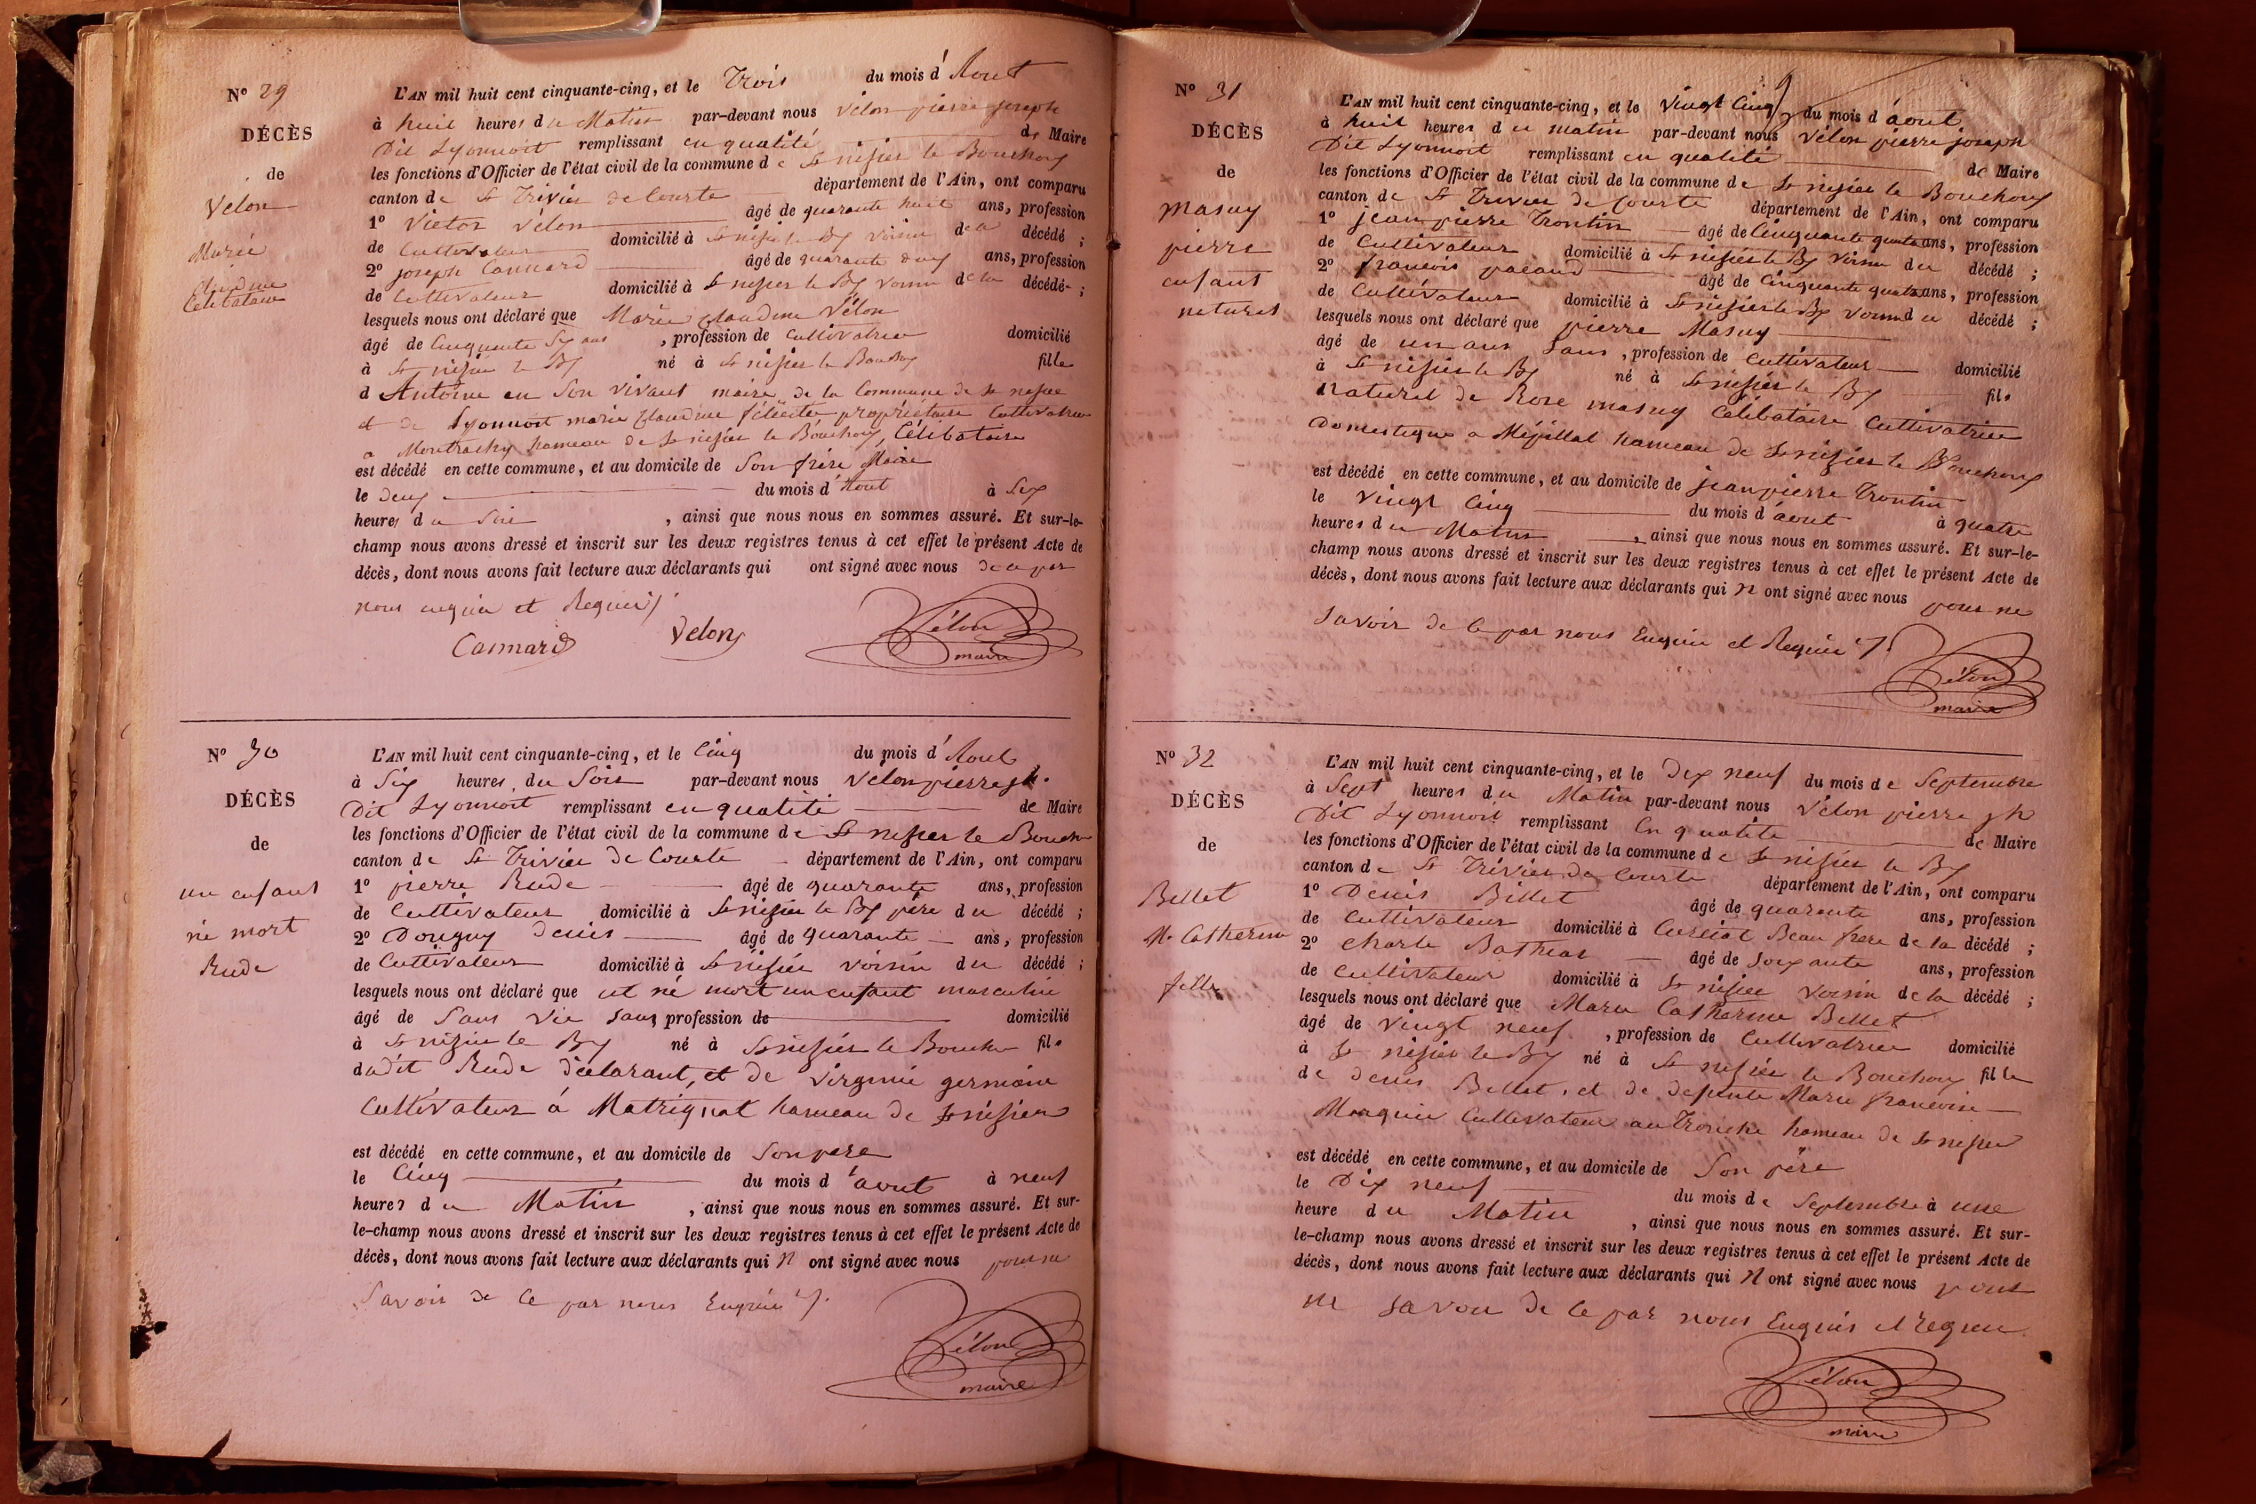 N° 29
DÉCÈS
de
Velon
Marie
Claudine
Célibataire
L'AN mil huit cent cinquante-cinq, et le Trois du mois d'Aout
à huit heures du Matin par-devant nous Vélon pierre joseph
Dit Lyonnoit remplissant en qualité de Maire
les fonctions d'Officier de l'état civil de la commune de St nisier le Bouchoux
canton de St Trivier de Courte département de l'Ain, ont comparu
1° Victor Vélon âgé de quarante huit ans, profession
de Cultivateur domicilié à St nisier le Bx voisin de la décédé ;
2° joseph Cannard âgé de quarante deux ans, profession
de Cultivateur domicilié à St nisier le Bx voisin de la décédé ;
lesquels nous ont déclaré que Marie Claudine Vélon
âgé de Cinquante Six ans , profession de Cultivatrice domicilié
à St nisier le Bx né à St nisier le Bouchoux fille
d'Antoine en Son vivant maire de la Commune de St nisier
et de Lyonnoit marie Claudine félicité propriétaire Cultivatrice
a Montrachy hameau de St nisier le Bouchoux, Célibataire
est décédé en cette commune, et au domicile de Son frère Maire
le deux du mois d'Aout à Six
heures du Soir , ainsi que nous nous en sommes assuré. Et sur-le-
champ nous avons dressé et inscrit sur les deux registres tenus à cet effet le présent Acte de
décès, dont nous avons fait lecture aux déclarants qui ont signé avec nous de ce par
nous enquis et Requis
Cannard Velon Vélon
maire
N° 30
DÉCÈS
de
un enfant
né mort
Rude
L'AN mil huit cent cinquante-cinq, et le Cinq du mois d'Aout
à Six heures du Soir par-devant nous Vélon pierre jh.
Dit Lyonnoit remplissant en qualité de Maire
les fonctions d'Officier de l'état civil de la commune de St nisier le Bouchx
canton de St Trivier de Courte département de l'Ain, ont comparu
1° pierre Rude âgé de quarante ans, profession
de Cultivateur domicilié à St nisier le Bx père du décédé ;
2° Douguy denis âgé de quarante ans, profession
de Cultivateur domicilié à St nisier voisin du décédé ;
lesquels nous ont déclaré que est né mort un enfant masculin
âgé de Sans vie Sans profession de domicilié
à St nisier le Bx né à St nisier le Bouchx fils
dudit Rude déclarant, et de virginie germain
Cultivateur à Matrignat hameau de St nisier
est décédé en cette commune, et au domicile de Son père
le Cinq du mois d'août à neuf
heures du Matin , ainsi que nous nous en sommes assuré. Et sur-
le-champ nous avons dressé et inscrit sur les deux registres tenus à cet effet le présent Acte de
décès, dont nous avons fait lecture aux déclarants qui n'ont signé avec nous pour ne
Savoir de ce par nous Enquis
Vélon
maire
N° 31
DÉCÈS
de
masuy
pierre
enfant
naturel
L'AN mil huit cent cinquante-cinq, et le Vingt Cinq du mois d'août
à huit heures du matin par-devant nous Vélon pierre joseph
Dit Lyonnoit remplissant en qualité de Maire
les fonctions d'Officier de l'état civil de la commune de St nisier le Bouchoux
canton de St Trivier de Courte département de l'Ain, ont comparu
1° jean pierre Trontin âgé de Cinquante quatre ans, profession
de Cultivateur domicilié à St nisier le Bx voisin du décédé ;
2° francois pacaud âgé de Cinquante quatre ans, profession
de Cultivateur domicilié à St nisier le Bx voisin du décédé ;
lesquels nous ont déclaré que pierre Masuy
âgé de un ans Sans , profession de Cultivateur domicilié
à St nisier le Bx né à St nisier le Bx fils
naturel de Rose masuy Célibataire Cultivatrice
Domestique a Mépillat hameau de St nisier le Bouchoux
est décédé en cette commune, et au domicile de jean pierre Trontin
le Vingt Cinq du mois d'aout à quatre
heures du Matin , ainsi que nous nous en sommes assuré. Et sur-le-
champ nous avons dressé et inscrit sur les deux registres tenus à cet effet le présent Acte de
décès, dont nous avons fait lecture aux déclarants qui n'ont signé avec nous pour ne
Savoir de ce par nous Enquis et Requis
Vélon
maire
N° 32
DÉCÈS
de
Bellet
M. Catherine
fille
L'AN mil huit cent cinquante-cinq, et le Dix neuf du mois de Septembre
à Sept heures du Matin par-devant nous Vélon pierre jh
Dit Lyonnoit remplissant En qualité de Maire
les fonctions d'Officier de l'état civil de la commune de St nisier le Bx
canton de St Trivier de Courte département de l'Ain, ont comparu
1° Denis Billet âgé de quarante ans, profession
de Cultivateur domicilié à Curciat Beau frere de la décédé ;
2° Charle Bathias âgé de Soixante ans, profession
de Cultivateur domicilié à St nisier voisin de la décédé ;
lesquels nous ont déclaré que Marie Catherine Bellet
âgé de Vingt neuf , profession de Cultivatrice domicilié
à St nisier le Bx né à St nisier le Bouchoux fille
de denis Bellet, et de defunte Marie francoise
Moquin Cultivateur au Tronche hameau de St nisier
est décédé en cette commune, et au domicile de Son père
le Dix neuf du mois de Septembre à une
heure du Matin , ainsi que nous nous en sommes assuré. Et sur-
le-champ nous avons dressé et inscrit sur les deux registres tenus à cet effet le présent Acte de
décès, dont nous avons fait lecture aux déclarants qui n'ont signé avec nous pour
ne savoir de ce par nous Enquis et requis
Vélon
maire